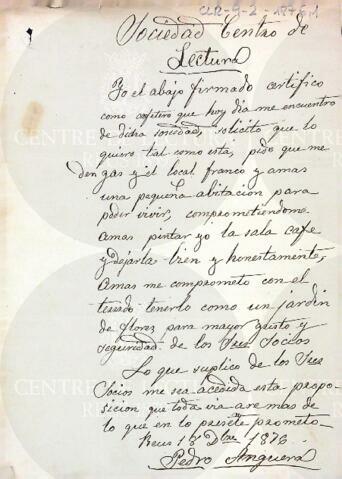 CLR-9-2-1876,1
Sociedad Centro de
Lectura
Yo el abajo firmado certifico
como cafetero que hoy dia me encuentro
de dicha sociedad, solicito que lo
quiero tal como esta, pido que me
den gas y el local franco y amas
una pequeña abitacion para
poder vivir, comprometiendome
amas pintar yo la sala cafe
y dejarla bien y honestamente,
amas me comprometo con el
terrado tenerlo como un jardin
de flores para mayor gusto y
seguridad de los Sres Socios
Lo que suplico de los Sres
Socios me sea acedida esta propo-
sicion que toda via are mas de
lo que en lo presete prometo
Reus 1 Dbre 1876
Pedro Anguera
CENTRE DE LECTURA